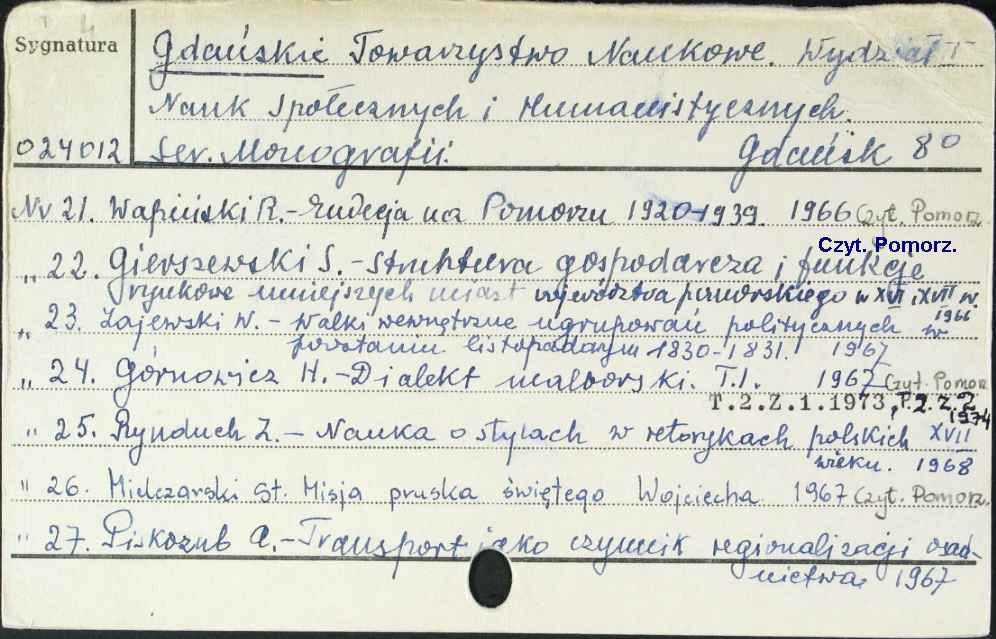 Sygnatura
Gdańskie Towarzystwo Naukowe. Wydział I
Nauk Społecznych i Humanistycznych.
024012
Ser. Monografii.
Gdańsk 8°
Nr 21. Wapiński R.- Endecja na Pomorzu 1920-1939. 1966 Czyt. Pomorz.
Czyt. Pomorz.
„ 22. Gierszewski S.- Struktura gospodarcza i funkcje
rynkowe mniejszych miast województwa pomorskiego w XVI i XVII w.
1966
„ 23. Zajewski W.- Walki wewnętrzne ugrupowań politycznych w
powstaniu listopadowym 1830-1831. 1967
„ 24. Górnowicz H.- Dialekt malborski. T.1. 1967 Czyt. Pomor
T.2.Z.1.1973, T.2.Z.2
1974
" 25. Rynduch Z.- Nauka o stylach w retorykach polskich XVII
wieku. 1968
" 26. Mielczarski St. Misja pruska świętego Wojciecha 1967 Czyt. Pomorz.
" 27. Piskozub A.- Transport jako czynnik regionalizacji osad-
nictwa 1967